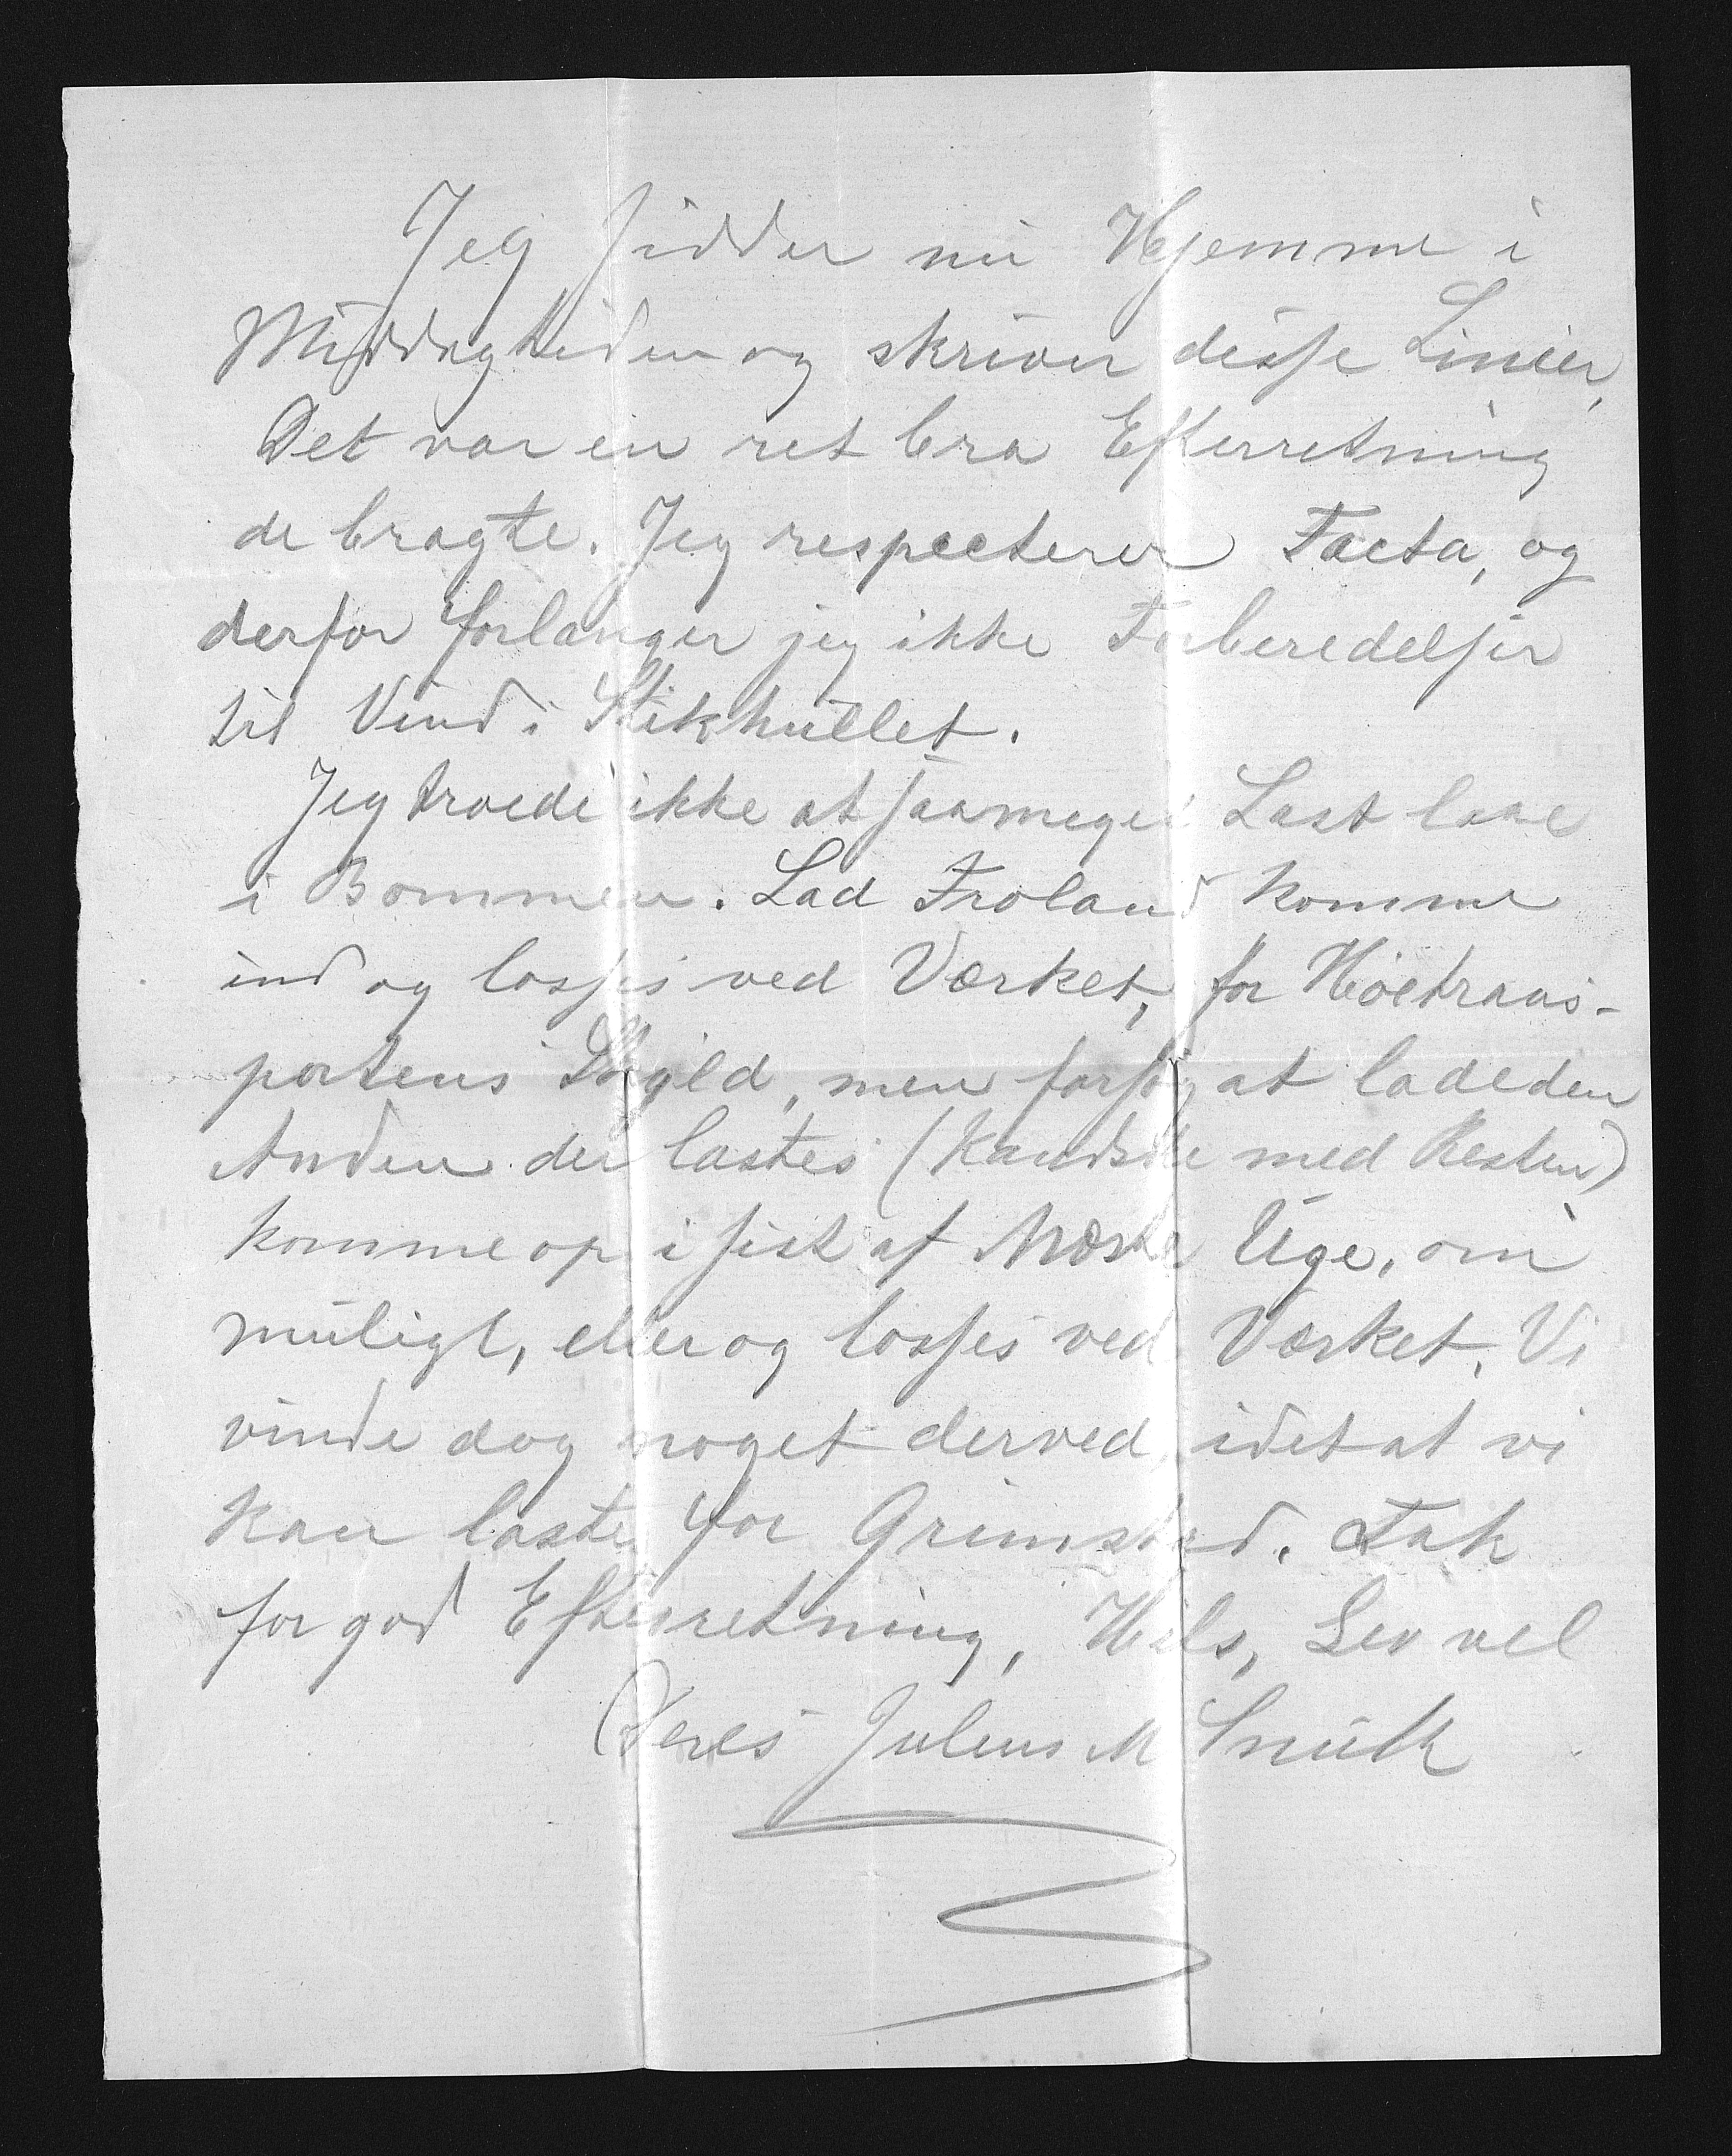 Jeg sidder nu Hjemme i
Middagstiden og skriver disse Linier,
Det var en ret bra Efterretning
de bragte. Jeg respecterer Facta, og
derfor forlanger jeg ikke Forberedelser
til Vind i Stikhullet.
Jeg troede ikke at saa meget Last laae
i Bommen. Lad Froland komme
ind og losses ved Værket, for Höetrans-
portens Skyld, men forsøg at lade den
Anden der lastes (Kandske med Resten)
komme op i sist af Næste Uge, om
muligt, eller og losses ved Værket. Vi
vinde dog noget derved, idet at vi
kan laste for Grimstad. Tak
for god Efterretning, Hils, Lev vel
Deres Julius M Smith